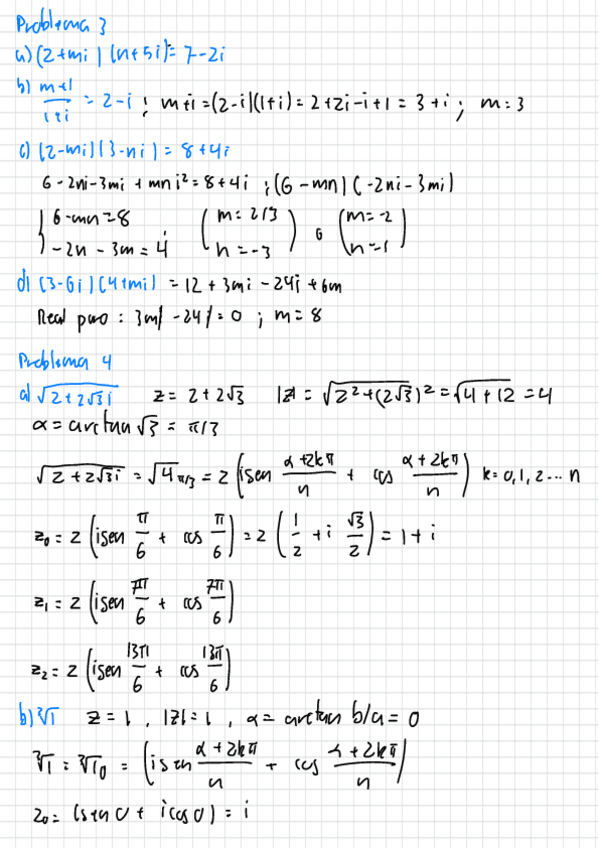 Problema 3
a) (2+mi) (n+5i) = 7-2i
b) m+i/1+i = 2-i ; m+i=(2-i)(1+i) = 2+2i-i+1 = 3+i ; m=3
c) (2-mi)(3-ni) = 8+4i
6-2ni-3mi + mni² = 8+4i ; (6-mn) (-2ni-3mi)
{ 6-mn=8 (m=2/3 ) ó (m=-2 )
{ -2n - 3m = 4 (n=-3 ) (n=1 )
d) (3-6i)(4+mi) = 12 + 3mi - 24i + 6m
Real puro : 3m/ - 24/ = 0 ; m = 8
Problema 4
a) √2+2√3i z = 2+2√3 |z| = √2²+(2√3)² = √4+12 = 4
α = arctan √3 = π/3
√2+2√3i = √4 π/3 = 2 (isen α+2kπ/n + cos α+2kπ/n) k=0,1,2...n
z₀ = 2 (isen π/6 + cos π/6) = 2 (1/2 + i √3/2) = 1+i
z₁ = 2 (isen 7π/6 + cos 7π/6)
z₂ = 2 (isen 13π/6 + cos 13π/6)
b) ∛1 z = 1 , |z| = 1 , α = arctan b/a = 0
∛1 = ∛1₀ = (isen α+2kπ/n + cos α+2kπ/n)
z₀ = (sen 0 + i cos 0) = i